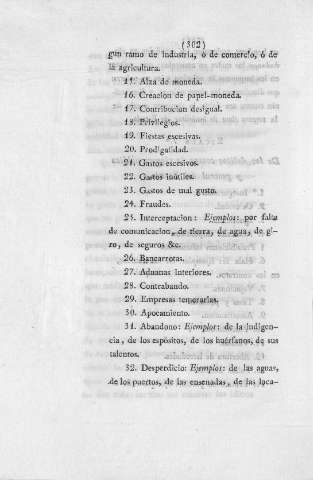 (302)
gun ramo de industria, ó de comercio, ó de
la agricultura.
15. Alza de moneda.
16. Creacion de papel-moneda.
17. Contribucion desigual.
18. Privilegios.
19. Fiestas escesivas.
20. Prodigalidad.
21. Gastos escesivos.
22. Gastos inútiles.
23. Gastos de mal gusto.
24. Fraudes.
25. Interceptacion: Ejemplos: por falta
de comunicacion, de tierra, de agua, de gi-
ro, de seguros &c.
26. Bancarrotas.
27. Aduanas interiores.
28. Contrabando.
29. Empresas temerarias.
30. Apocamiento.
31. Abandono: Ejemplos: de la indigen-
cia, de los espósitos, de los huérfanos, de sus
talentos.
32. Desperdicio: Ejemplos: de las aguas,
de los puertos, de las ensenadas, de las loca-